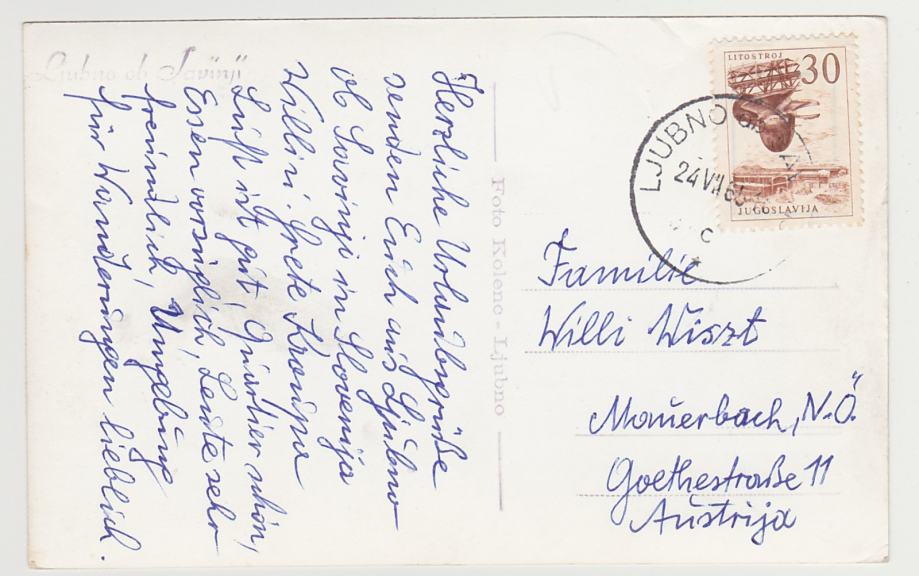 Ljubno ob Savinji
Herzliche Urlaubsgrüße
senden Euch aus Ljubno
ob Savinji in Slovenija
Willi u. Grete Kroupa
Luft ist gut, Quartier schön,
Essen vorzüglich, Leute sehr
freundlich, Umgebung
für Wanderungen lieblich.
Foto Kolenc - Ljubno
LITOSTROJ
30
JUGOSLAVIJA
LJUBNO
24 VII 6
c
Familie
Willi Wiszt
Mauerbach, N.Ö.
Goethestraße 11
Austrija